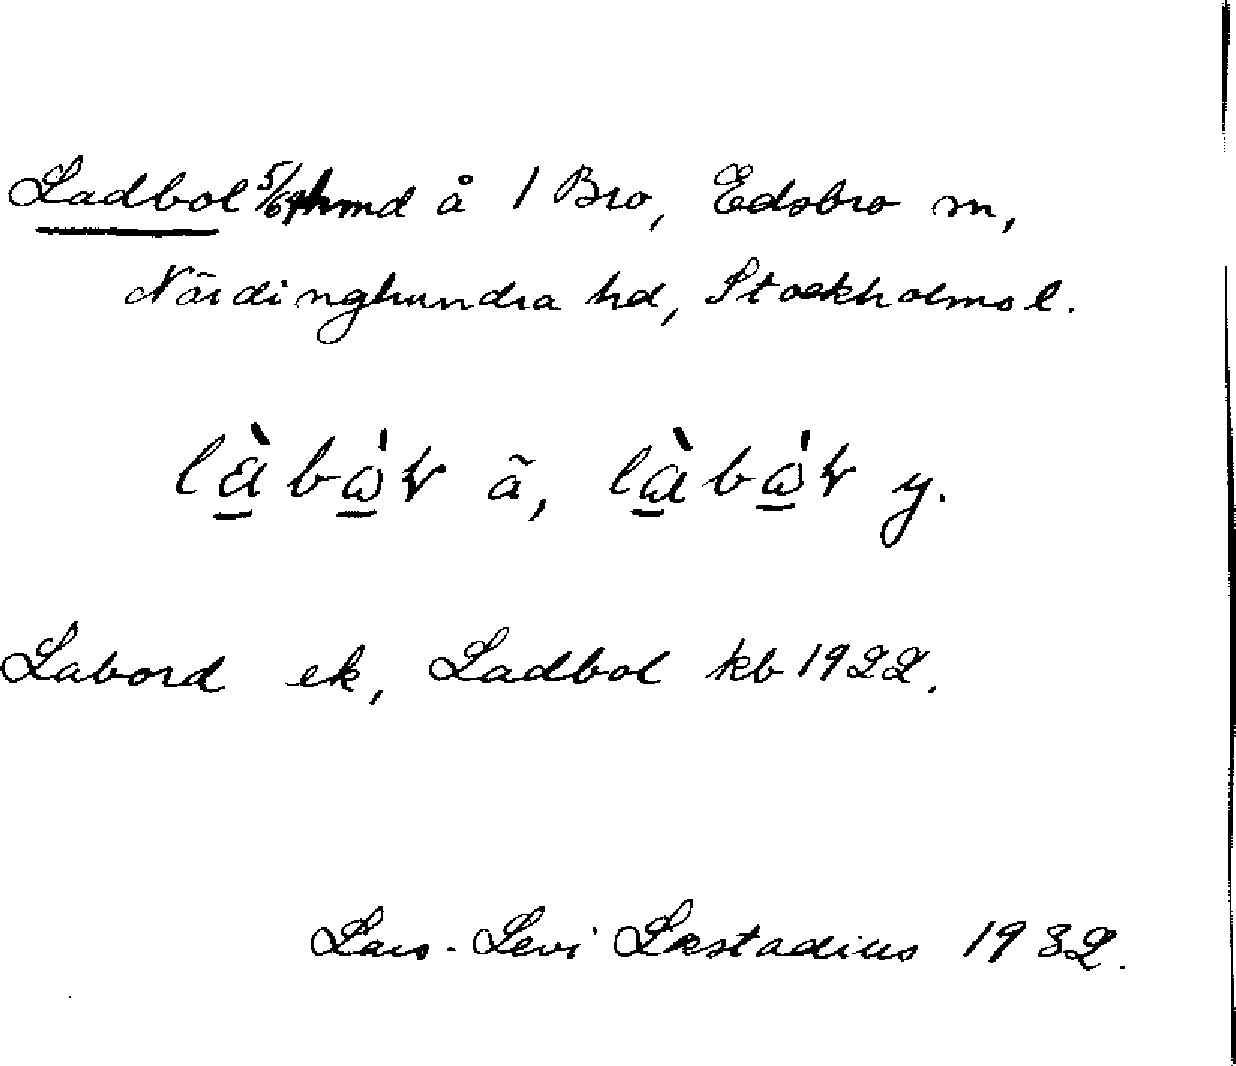 Ladbol 5/64 hmd å 1 Bro, Edsbro sn,
Närdinghundra hd, Stockholms l.
là̱bo̱̍ɽ ä, là̱bo̱̍ɽ y.
Labord ek, Ladbol kb 1922.
Lars-Levi Læstadius 1932.